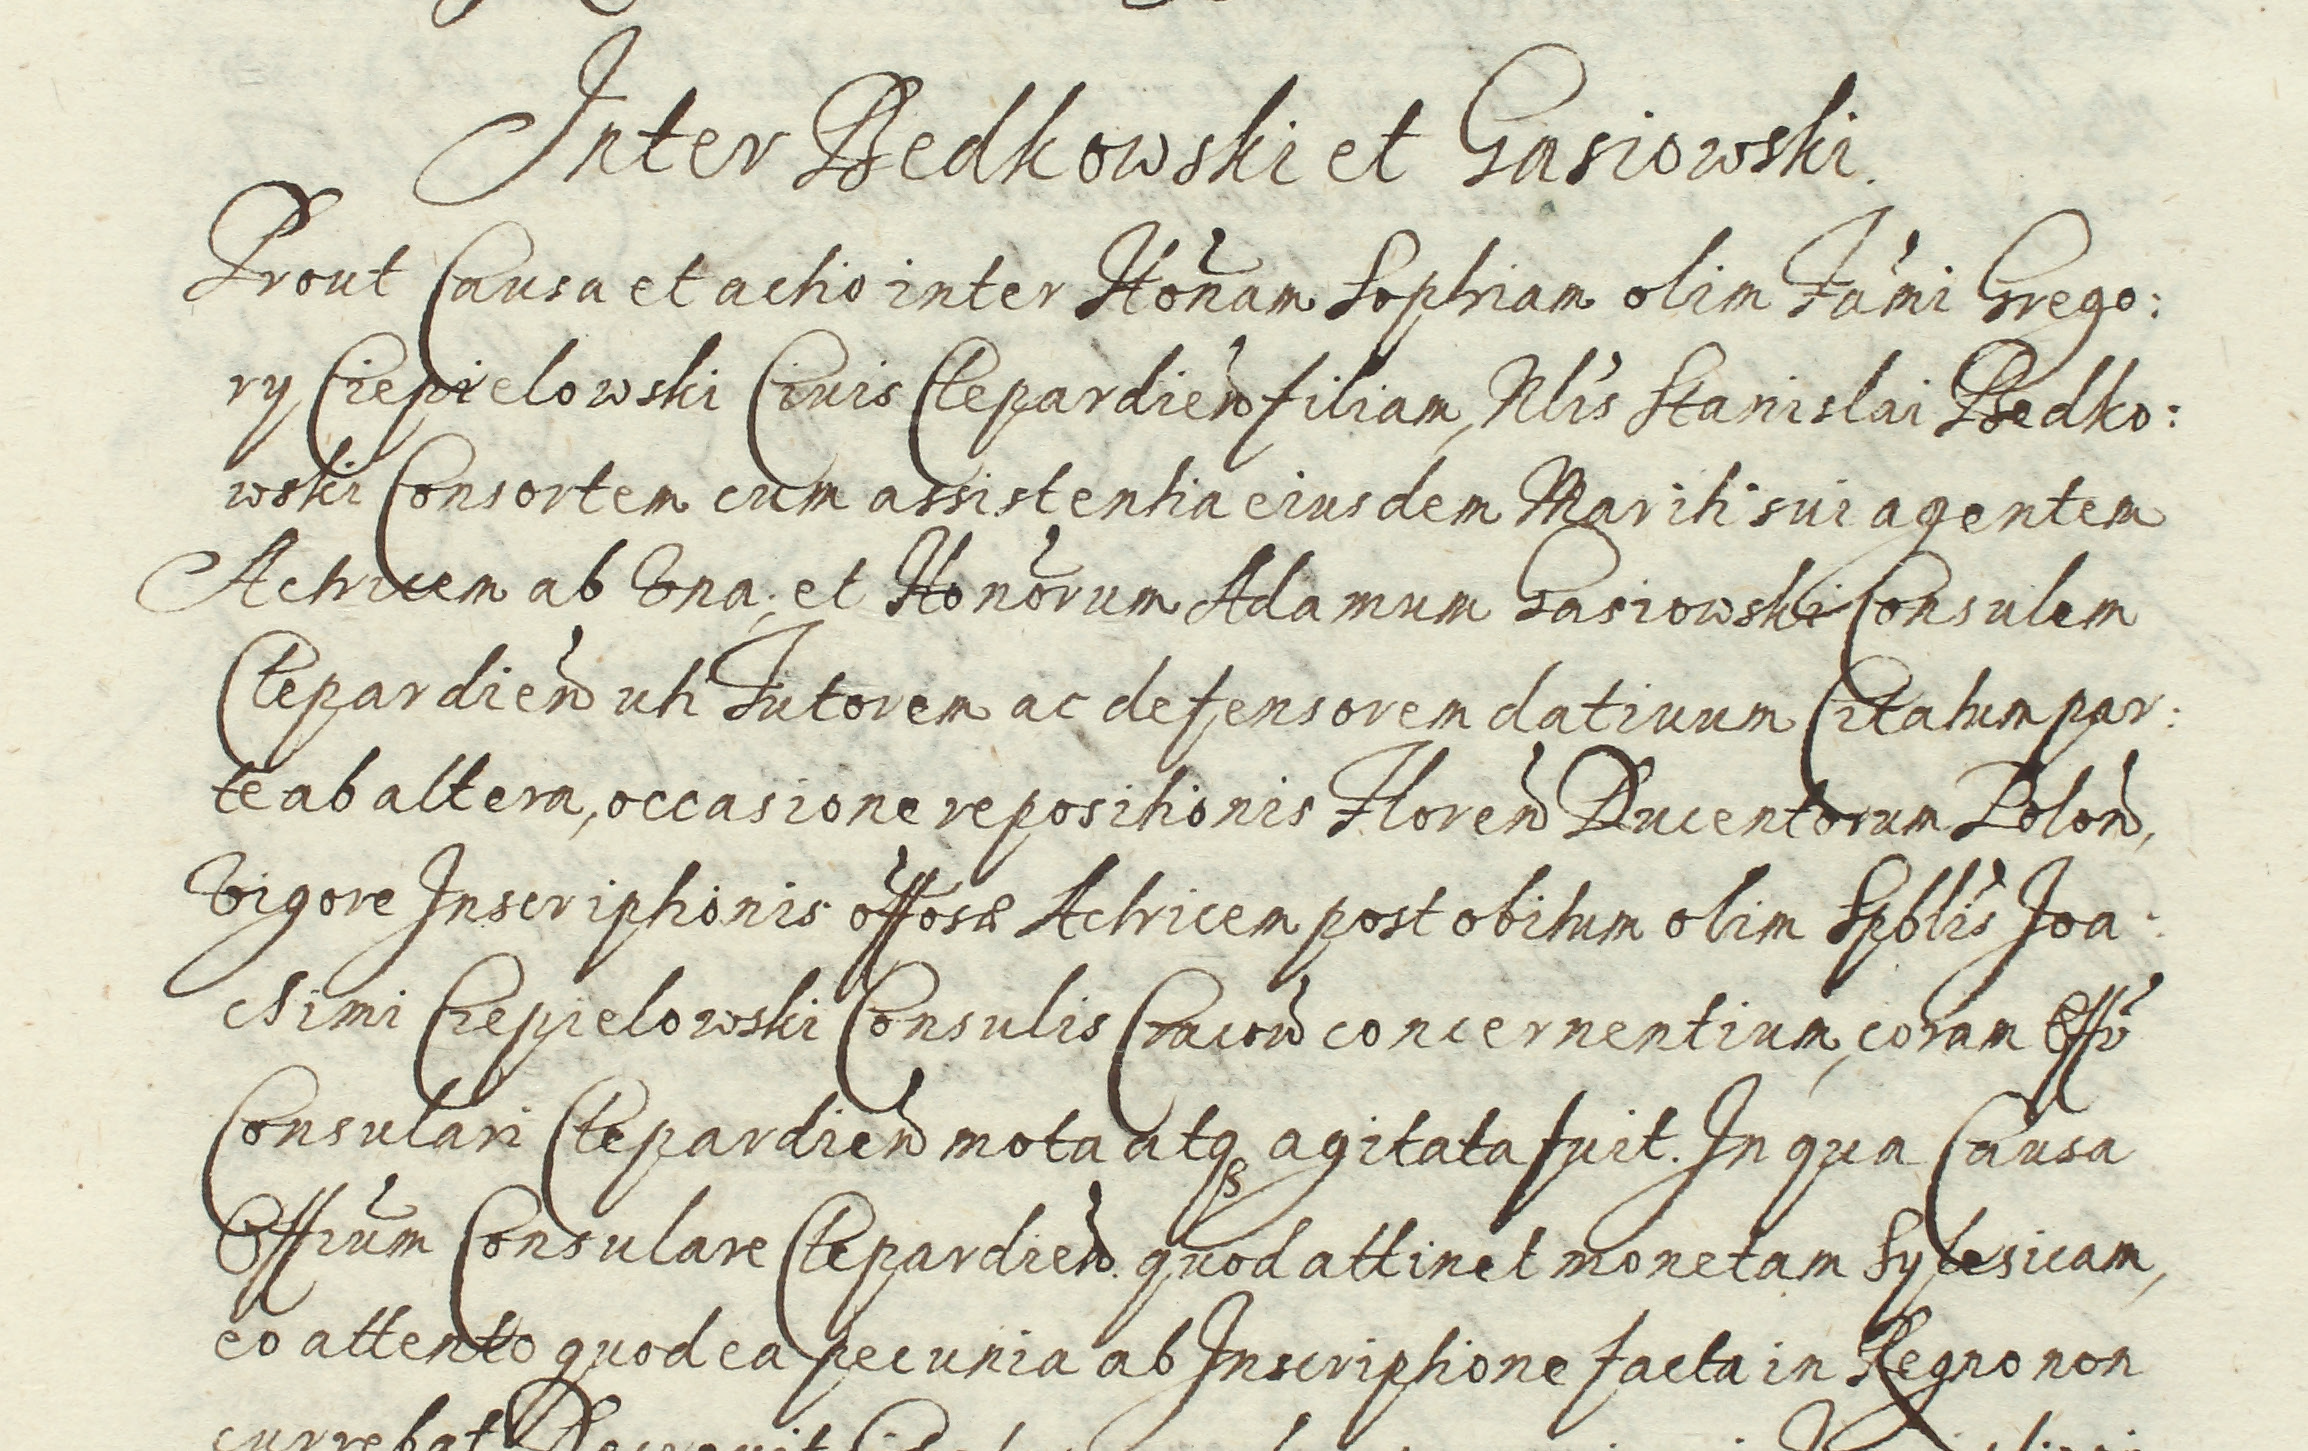 Inter Bedkowski et Gasiowski.
Prout Causa et actio inter Honam Sophiam olim Fami Grego:
ry Ciepielowski Ciuis Clepardien filiam, Nlis Stanislai Bedko:
wski Consortem cum assistentia eiusdem Mariti sui agentem
Actricem ab Vna, et Honorum Adamum Gasiowski Consulem
Clepardien uti Tutorem ac defensorem datiuum Citatum par:
te ab altera, occasione repositionis Floren Ducentorum Polon,
Vigore Inscriptionis offosæ Actricem post obitum olim Spblis Joa:
chimi Ciepielowski Consulis Cracou concernentium, coram Offo
Consulari Clepardien mota atq agitata fuit. In qua Causa
Offium Consulare Clepardien quod attinet monetam Sylesicam,
eo attento quod ea pecunia ab Inscriptione facta in Regno non
currebat Decreuit